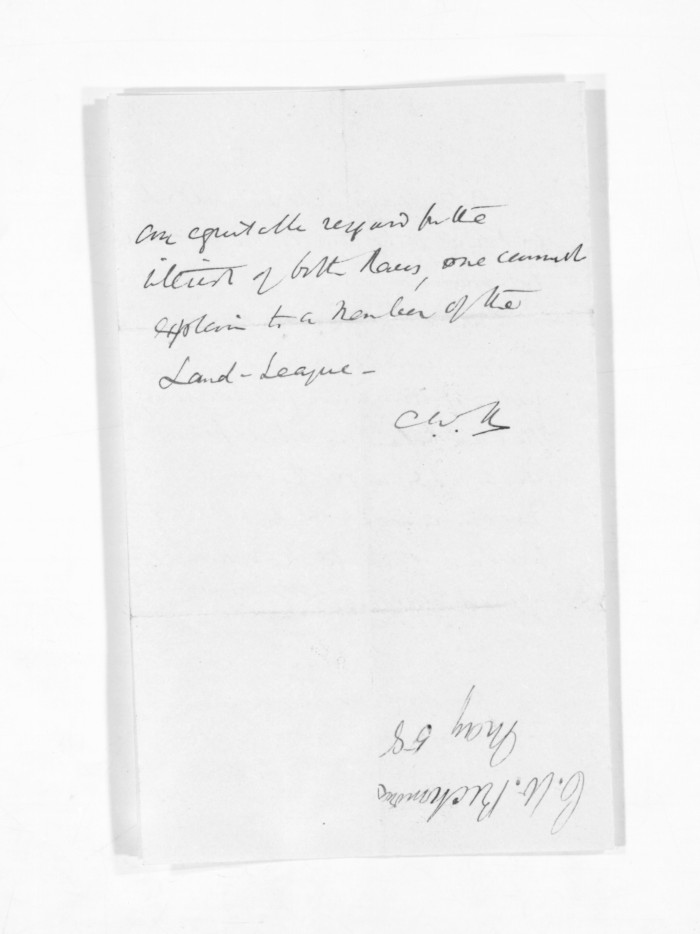 an equitable regard for the
interests of both Races, one cannot
explain to a Member of the
Land-League -
C.W.R
C.W. Richmond
May 58